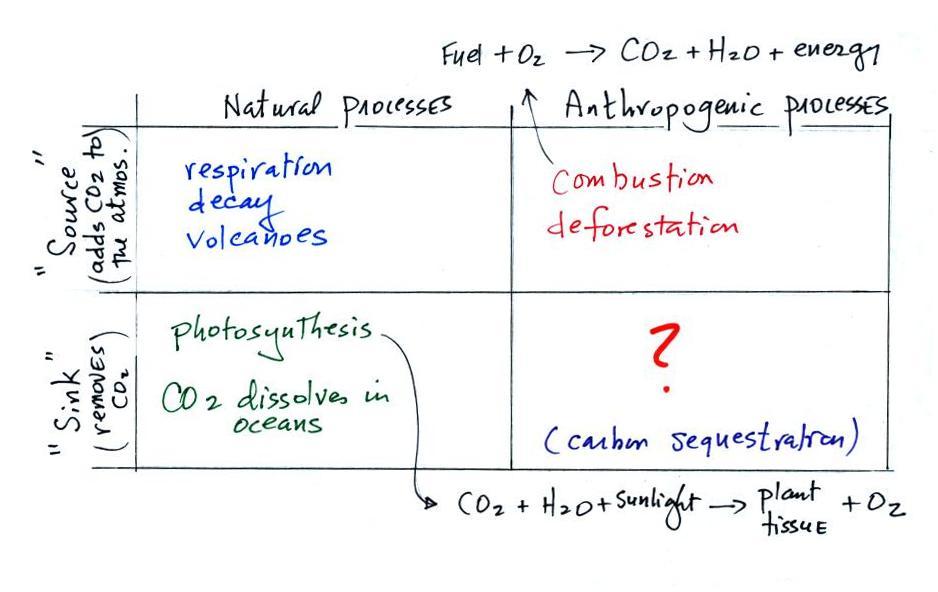 Fuel + O2 → CO2 + H2O + energy
Natural processes
Anthropogenic processes
"Source"
(adds CO2 to
the atmos.)
respiration
decay
volcanoes
combustion
deforestation
"Sink"
(removes
CO2)
photosynthesis
CO2 dissolves in
oceans
?
(carbon sequestration)
CO2 + H2O + sunlight → plant
tissue + O2